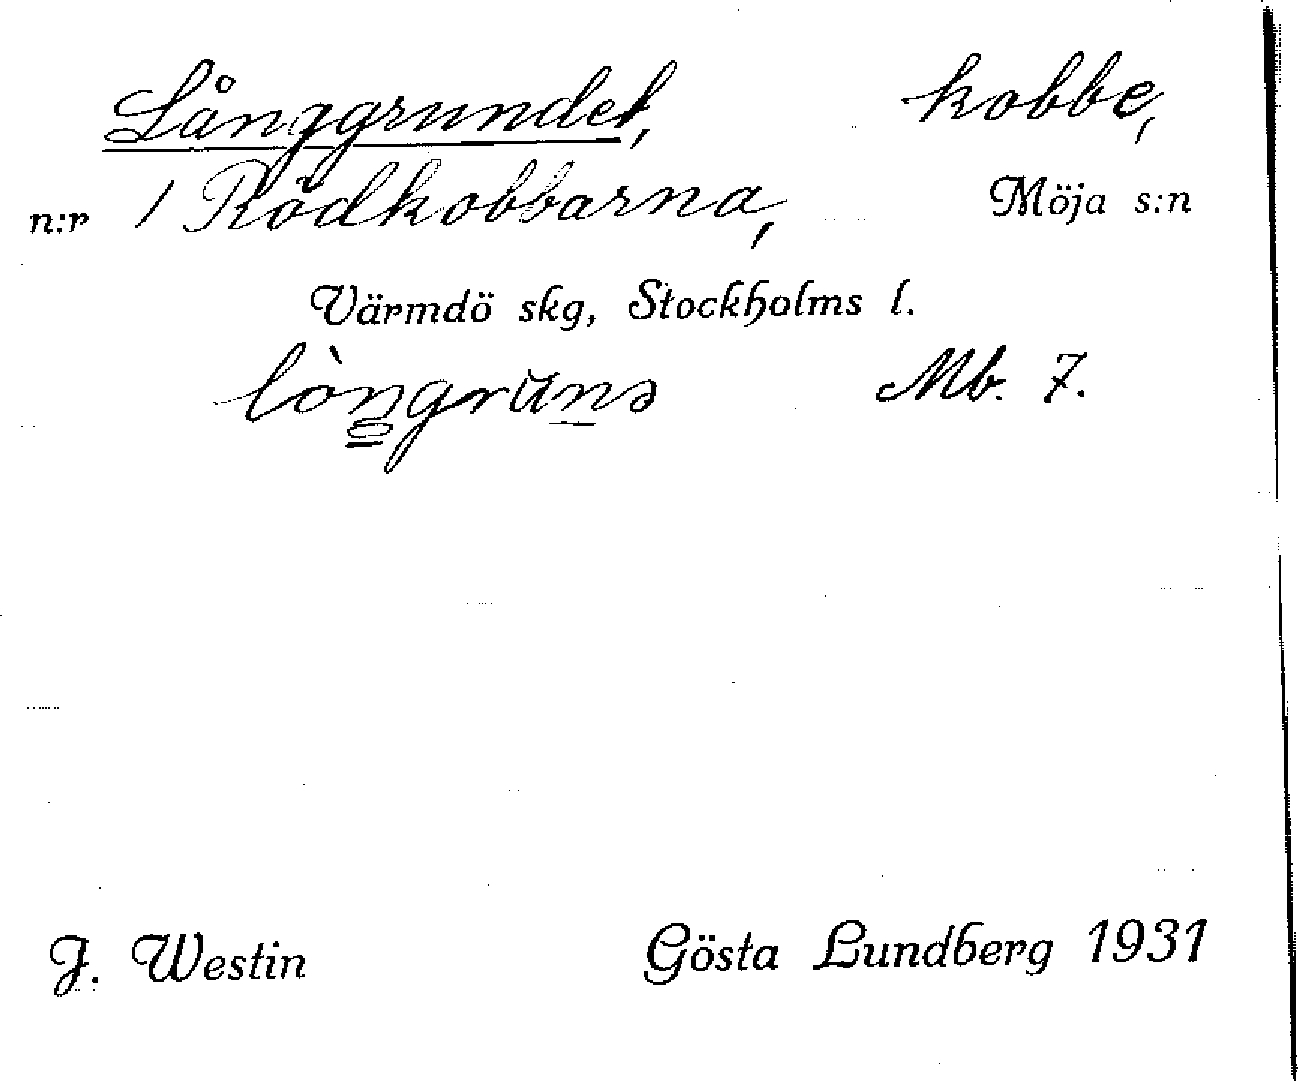 Långgrundet, kobbe,
n:r 1 Rödkobbarna, Möja s:n
Värmdö skg, Stockholms l.
lòngrŭnə Mb. 7.
J. Westin Gösta Lundberg 1931